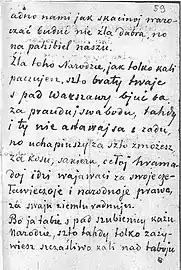 59
adno nami jak skacinoj naro-
czać budzie nie dla dabra, no
na pahibiel naszu.
Dla toho Narodzie, jak tolko kali
paczujesz, szto braty twaje
s pad Warszawy bjuć ba
za praudu i swabodu, tahdy
i ty nie adawajsia z zadu,
no uchapiuszy za szto zmożesz
za kosu, sakieru, cełoj hrama-
doj idzi wajawaci za swoje cze-
ławieczoje i narodnoje prawo,
za swaju ziemlu radnuju.
Bo ja tabie s pad szubienicy kazu
Narodzie, szto tahdy tolko zaży-
wiesz szczaśliwo kali nad taboju